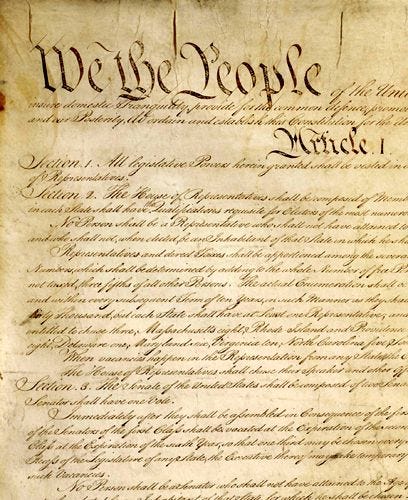 We the People of the Unit
insure domestic Tranquility, provide for the common defence, promo
and our Posterity, do ordain and establish this Constitution for the Un
Article. I.
Section. 1. All legislative Powers herein granted shall be vested in
of Representatives.
Section. 2. The House of Representatives shall be composed of Mem
in each State shall have Qualifications requisite for Electors of the most numero
No Person shall be a Representative who shall not have attained to
and who shall not, when elected, be an Inhabitant of that State in which he sha
Representatives and direct Taxes shall be apportioned among the severa
Numbers, which shall be determined by adding to the whole Number of free P
not taxed, three fifths of all other Persons. The actual Enumeration shall
and within every subsequent Term of ten Years, in such Manner as they sha
thirty Thousand, but each State shall have at Least one Representative; and
entitled to chuse three, Massachusetts eight, Rhode Island and Providence
eight, Delaware one, Maryland six, Virginia ten, North Carolina five, So
When vacancies happen in the Representation from any State, the
The House of Representatives shall chuse their Speaker and other
Section. 3. The Senate of the United States shall be composed of two Sena
Senator shall have one Vote.
Immediately after they shall be assembled in Consequence of the fir
of the Senators of the first Class shall be vacated at the Expiration of the
Class at the Expiration of the sixth Year, so that one third may be chosen every
Recess of the Legislature of any State, the Executive thereof may make temporary
such Vacancies.
No Person shall be a Senator who shall not have attained to the Ag